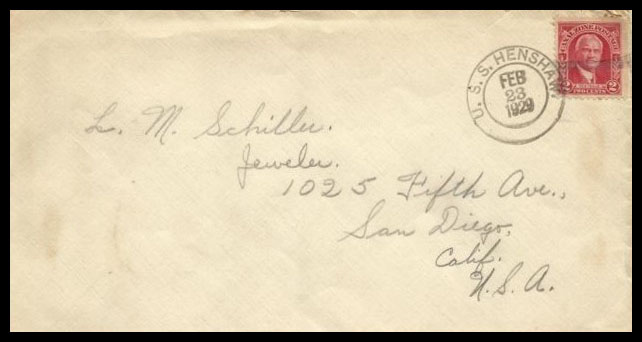 CANAL ZONE POSTAGE
2 TWO CENTS 2
U. S. S. HENSHAW
FEB
23
1929
L. M. Schiller.
Jeweler.
1025 Fifth Ave.,
San Diego,
Calif.
U.S.A.